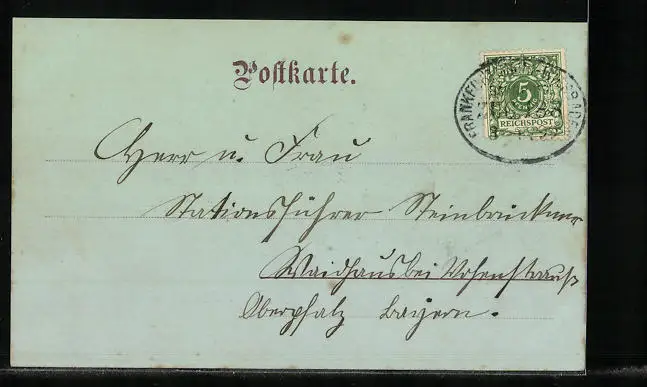 Postkarte.
5
REICHSPOST
Herr u. Frau
Stationsführer Steinbrückner
Waidhaus bei Vohenstrauß
Oberpfalz Bayern.